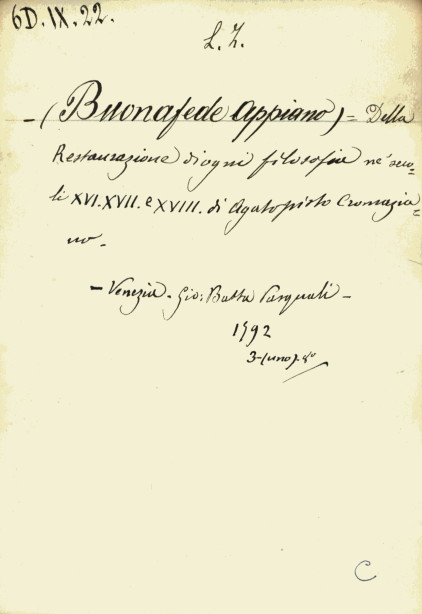 6D.IX.22.
L. Z.
-(Buonafede Appiano) = Della
Restaurazione di ogni filosofia ne' seco-
li XVI. XVII. e XVIII. di Agatopisto Cromazia-
no.
- Venezia. Gio: Batta Pasquali -
1792
3-(uno). 8°
C